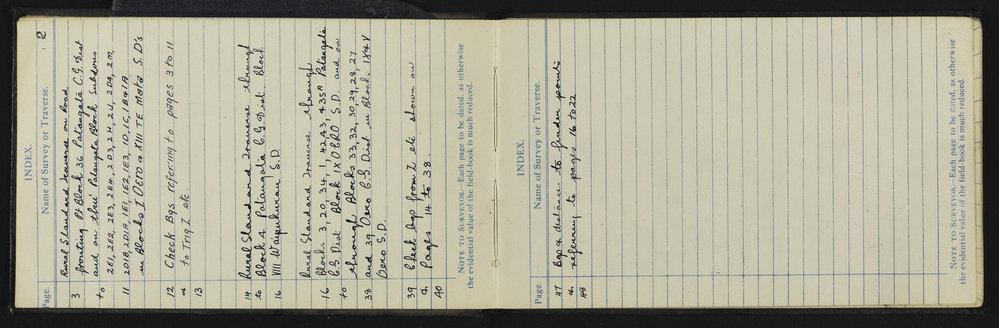 2
INDEX.
Page. Name of Survey or Traverse.
Rural Standard Traverse on Road
3 fronting Pt Block 36 Patangata C.G. Dist
and on thru Patangata Block Subdivns
to 2E1, 2E2, 2E3, 2E4, 2D3, 2H, 2J, 2D9, 2M,
11 2D1B, 2D1A, 1E1, 1E2, 1E3, 1D, 1C, 1B & 1A
in Blocks I OERO & XIII TE Mata S.D's
12 Check Bgs referring to pages 3 to 11
& to Trig I etc.
13
14 Rural Standard Traverse through
to Block 4 Patangata C.G. Dist. Block
16 VIII Waipukurau S.D.
Rural Standard Traverse through
16 Blocks 3, 20, 34, 1, 42, 43, & 35A Patangata
C.G. Dist Block IX OERO S.D. and on
to through Blocks 33, 32, 30, 29, 28, 27
38 and 39 Oero C.G Dist in Blocks IX & V
Oero S.D.
39 Check bgs from I etc shown on
& Pages 14 to 38.
40
NOTE TO SURVEYOR.—Each page to be dated, as otherwise
the evidential value of the field-book is much reduced.
INDEX.
Page. Name of Survey or Traverse.
47 Bgs & distances to fender points
& referring to pages 16 to 22
48
NOTE TO SURVEYOR.—Each page to be dated, as otherwise
the evidential value of the field-book is much reduced.